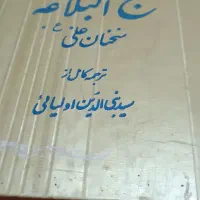 نهج البلاغه
سخنان علی ع
ترجمه کامل از
سید نبی الدین اولیائی